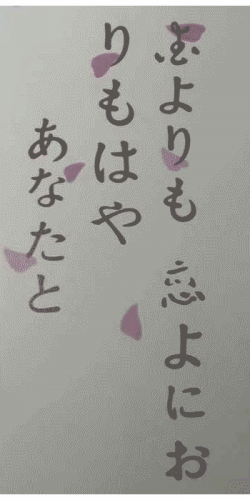 よりも 恋よにお
りもはや
あなたと